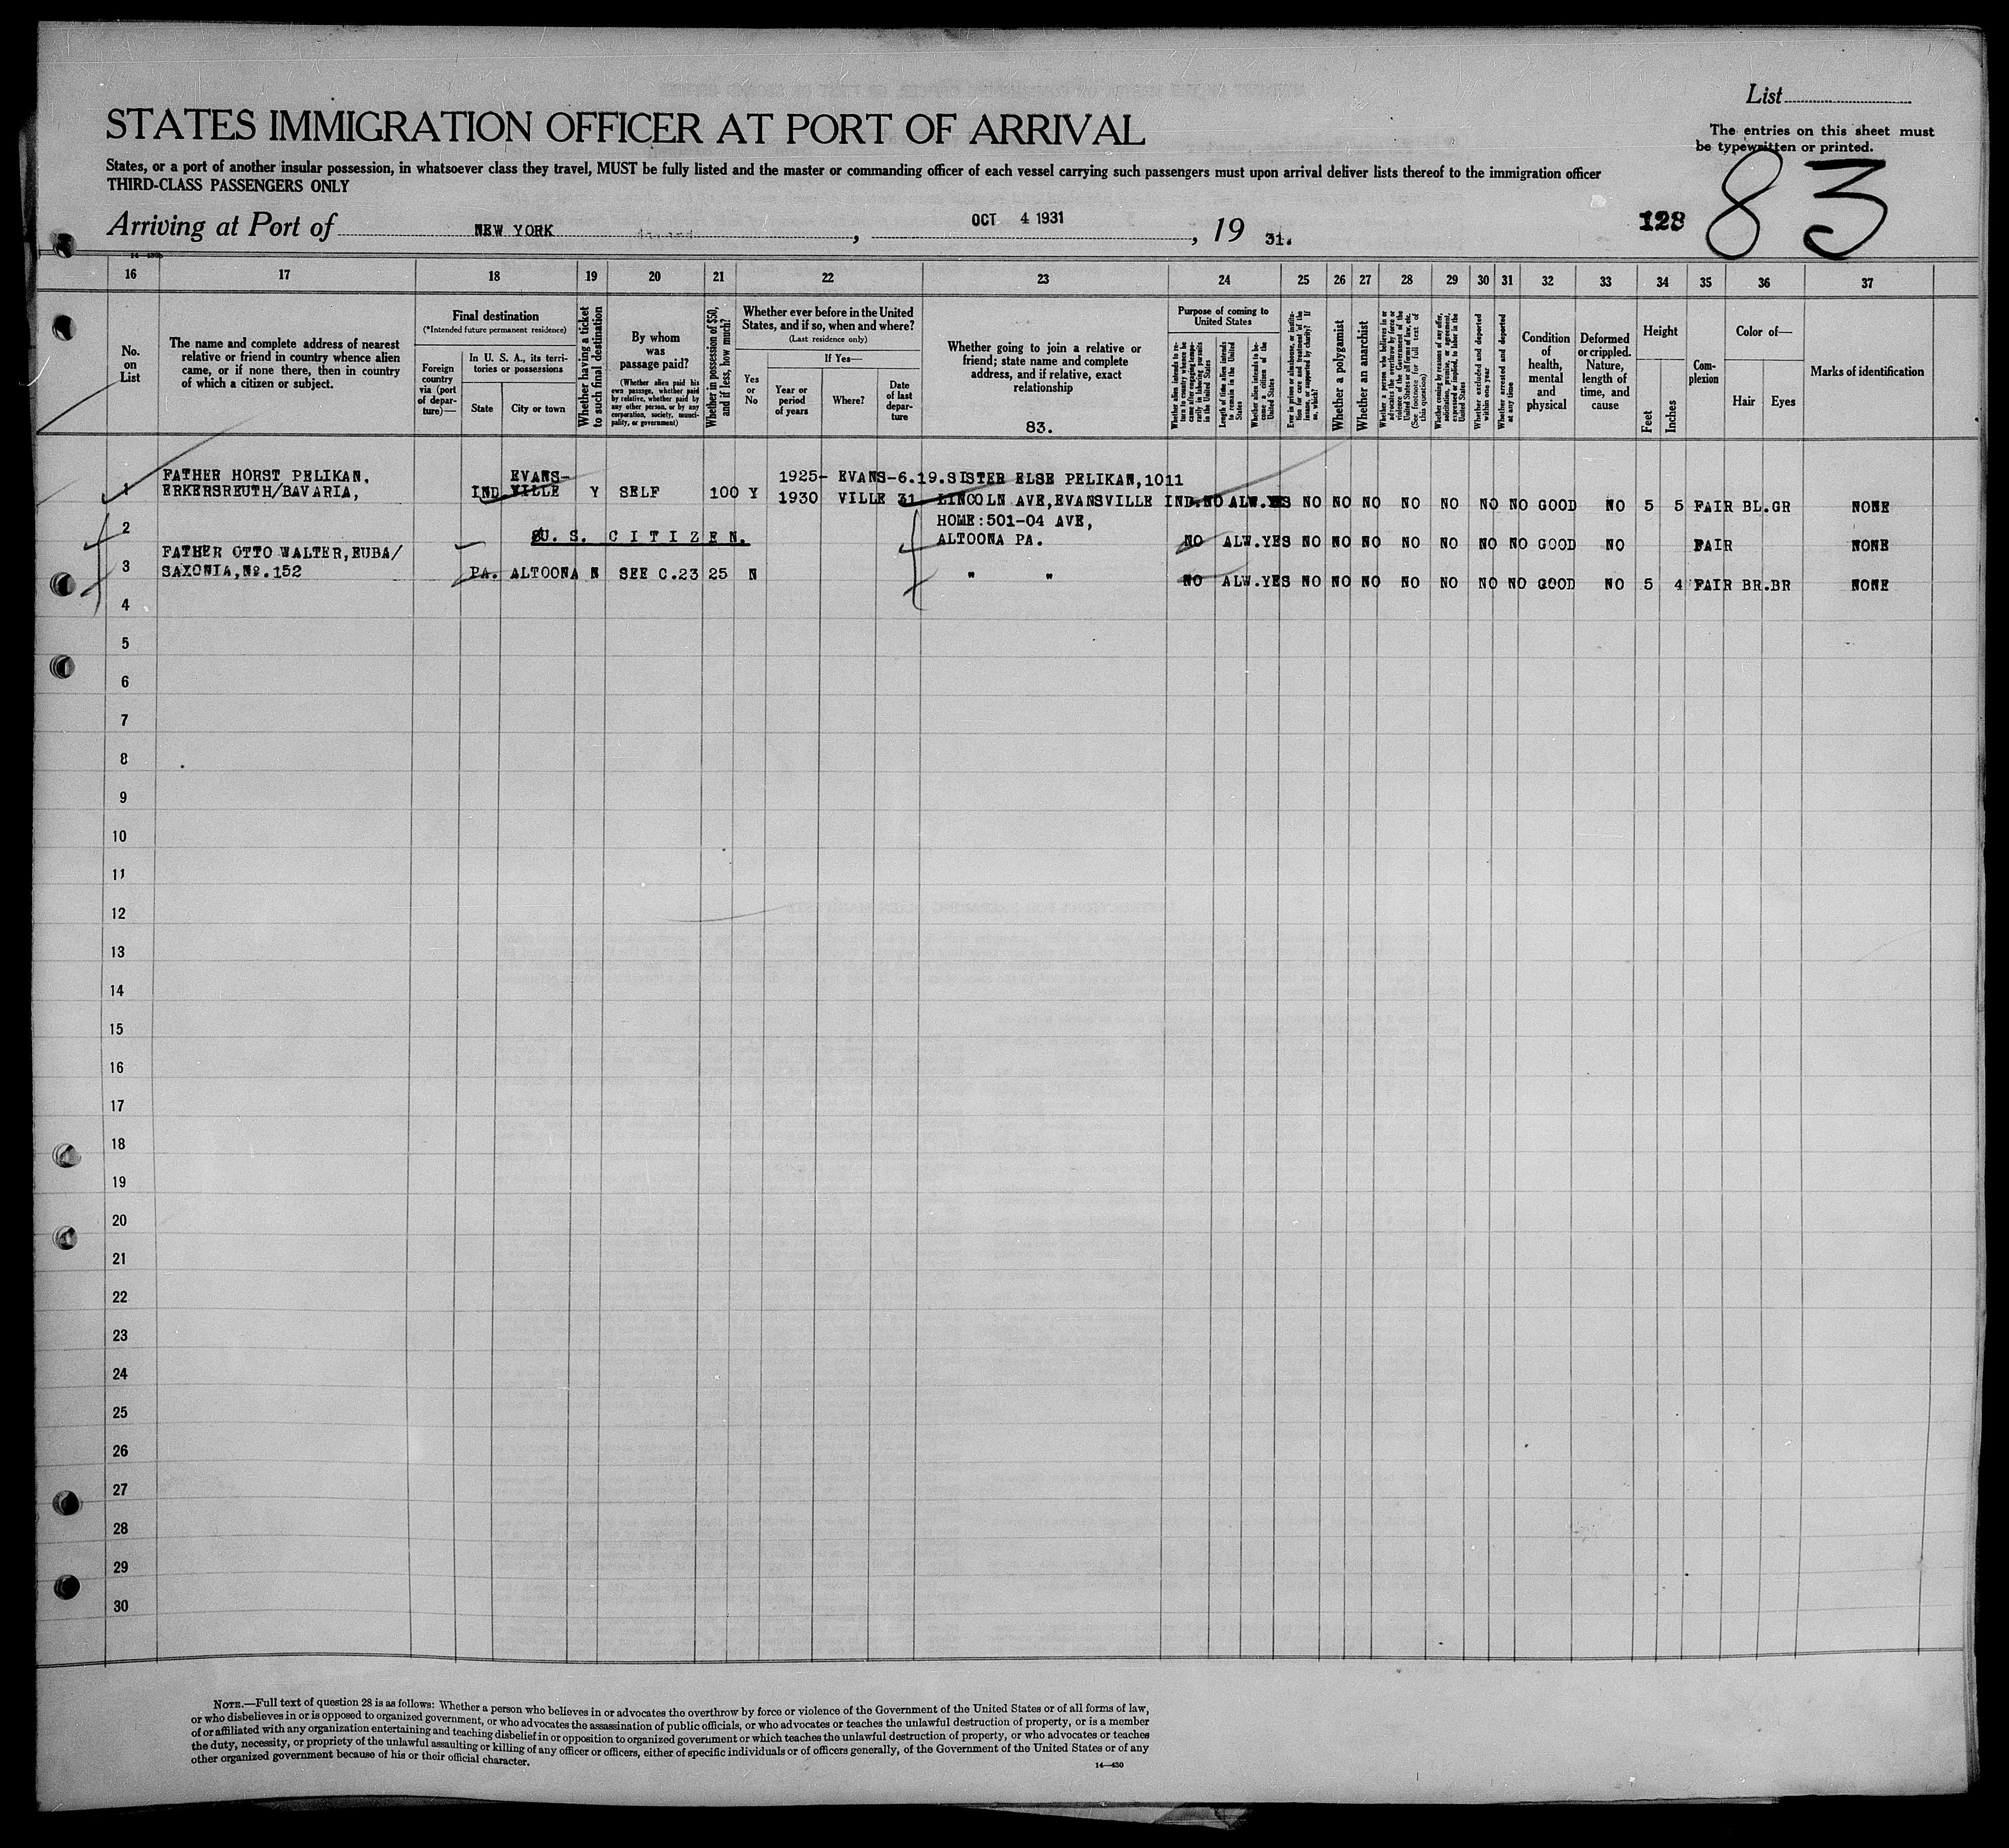 List
STATES IMMIGRATION OFFICER AT PORT OF ARRIVAL
The entries on this sheet must
be typewritten or printed.
States, or a port of another insular possession, in whatsoever class they travel, MUST be fully listed and the master or commanding officer of each vessel carrying such passengers must upon arrival deliver lists thereof to the immigration officer
THIRD-CLASS PASSENGERS ONLY
83
Arriving at Port of NEW YORK, OCT 4 1931, 19 31. 128
14-430b
16 17 18 19 20 21 22 23 24 25 26 27 28 29 30 31 32 33 34 35 36 37
No. on List
The name and complete address of nearest
relative or friend in country whence alien
came, or if none there, then in country
of which a citizen or subject.
Final destination
(*Intended future permanent residence)
Foreign
country
via (port
of depar-
ture)—
In U. S. A., its terri-
tories or possessions
State
City or town
Whether having a ticket
to such final destination
By whom
was
passage paid?
(Whether alien paid his
own passage, whether paid
by relative, whether paid by
any other person, or by any
corporation, society, munici-
pality, or government)
Whether in possession of $50,
and if less, how much?
Whether ever before in the United
States, and if so, when and where?
(Last residence only)
Yes
or
No
If Yes—
Year or
period
of years
Where?
Date
of last
depar-
ture
Whether going to join a relative or
friend; state name and complete
address, and if relative, exact
relationship
83.
Purpose of coming to
United States
Whether alien intends to re-
turn to country whence he
came after engaging tempo-
rarily in laboring pursuits
in the United States
Length of time alien intends
to remain in the United
States
Whether alien intends to be-
come a citizen of the
United States
Ever in prison or almshouse, or institu-
tion for care and treatment of the
insane, or supported by charity? If
so, which?
Whether a polygamist
Whether an anarchist
Whether a person who believes in or
advocates the overthrow by force or
violence of the Government of the
United States or all forms of law, etc.
(See footnote for full text of
this question)
Whether coming by reason of any offer,
solicitation, promise, or agreement,
expressed or implied, to labor in the
United States
Whether excluded and deported
within one year
Whether arrested and deported
at any time
Condition
of
health,
mental
and
physical
Deformed
or crippled.
Nature,
length of
time, and
cause
Height
Feet
Inches
Com-
plexion
Color of—
Hair
Eyes
Marks of identification
FATHER HORST PELIKAN, EVANS- 1925- EVANS-6.19.SISTER ELSE PELIKAN,1011
1 ERKERSREUTH/BAVARIA, IND VILLE Y SELF 100 Y 1930 VILLE 31 LINCOLN AVE,EVANSVILLE IND.NO ALW.YES NO NO NO NO NO NO NO GOOD NO 5 5 FAIR BL.GR NONE
HOME:501-04 AVE,
2 U. S. CITIZEN. ALTOONA PA. NO ALW.YES NO NO NO NO NO NO NO GOOD NO FAIR NONE
FATHER OTTO WALTER,EUBA/
3 SAXONIA,No.152 PA. ALTOONA N SEE C.23 25 N " " NO ALW.YES NO NO NO NO NO NO NO GOOD NO 5 4 FAIR BR.BR NONE
4
5
6
7
8
9
10
11
12
13
14
15
16
17
18
19
20
21
22
23
24
25
26
27
28
29
30
NOTE.—Full text of question 28 is as follows: Whether a person who believes in or advocates the overthrow by force or violence of the Government of the United States or of all forms of law,
or who disbelieves in or is opposed to organized government, or who advocates the assassination of public officials, or who advocates or teaches the unlawful destruction of property, or is a member
of or affiliated with any organization entertaining and teaching disbelief in or opposition to organized government or which teaches the unlawful destruction of property, or who advocates or teaches
the duty, necessity, or propriety of the unlawful assaulting or killing of any officer or officers, either of specific individuals or of officers generally, of the Government of the United States or of any
other organized government because of his or their official character.
14—430